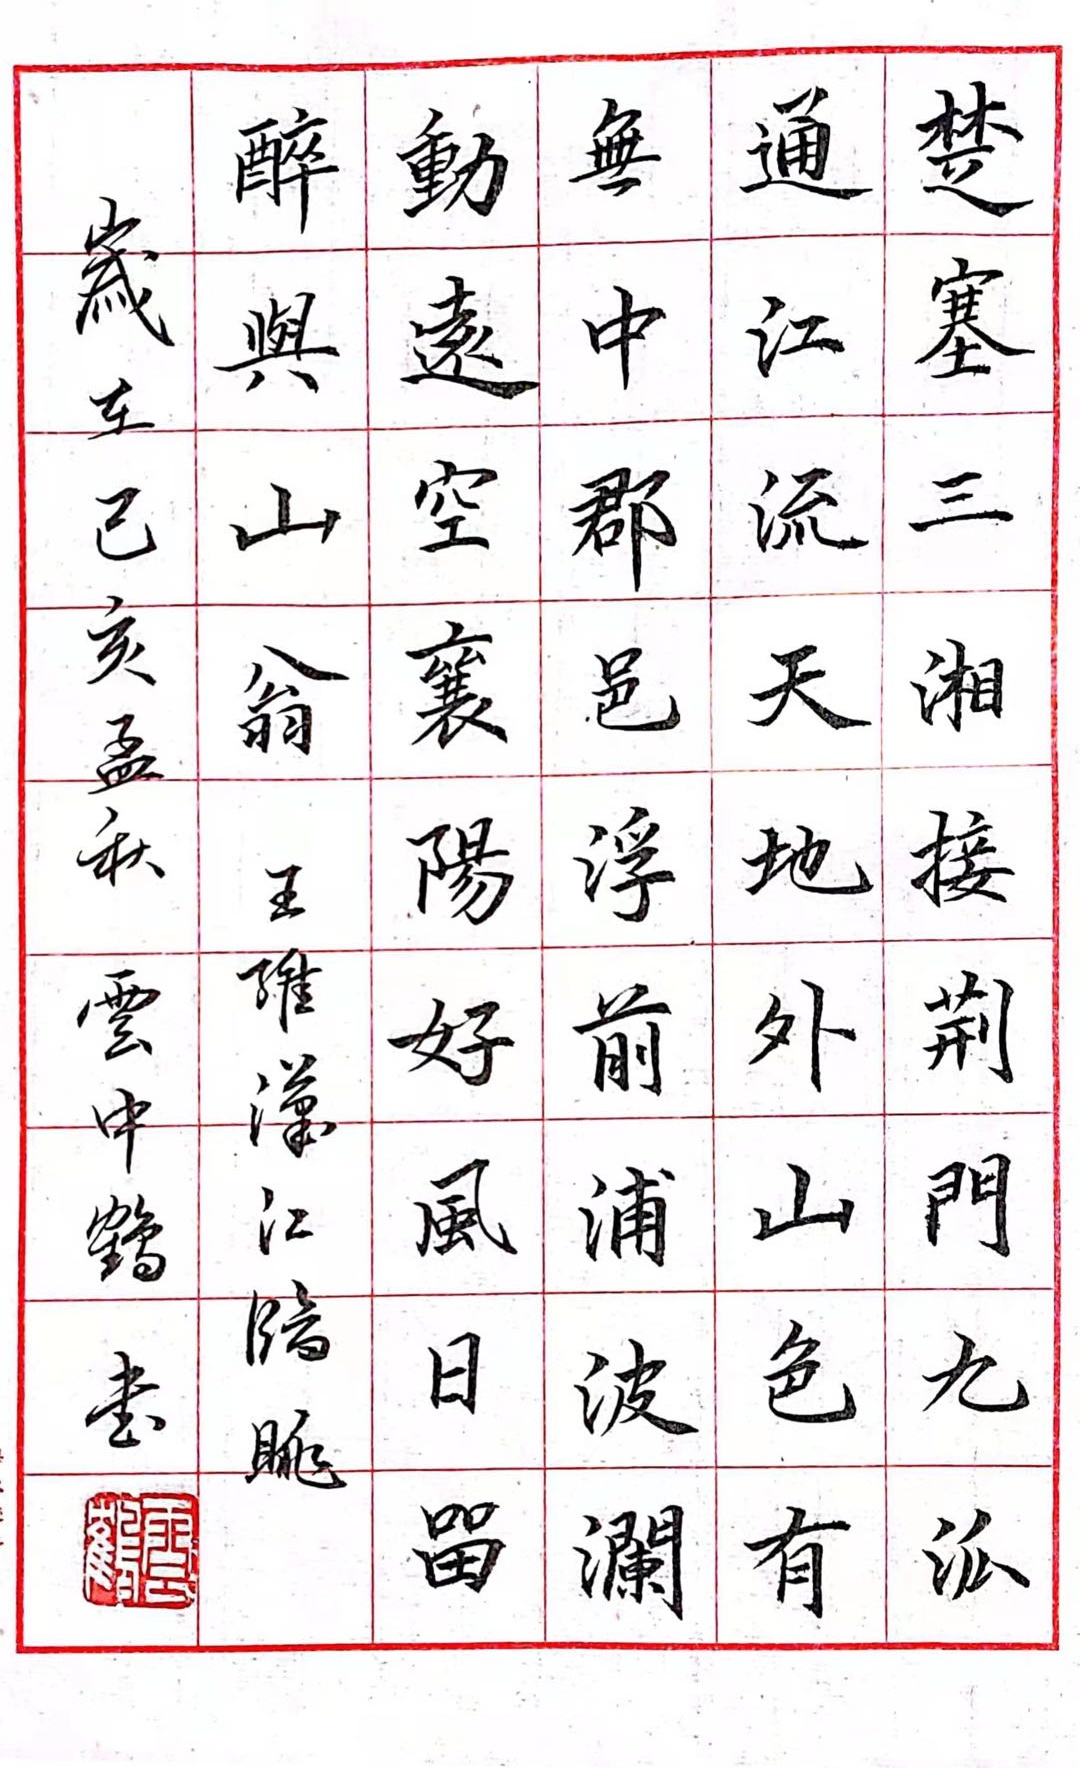 楚塞三湘接荆門九派
通江流天地外山色有
無中郡邑浮前浦波瀾
動遠空襄陽好風日留
醉與山翁 王維漢江臨眺
歲在己亥孟秋 雲中鶴 書